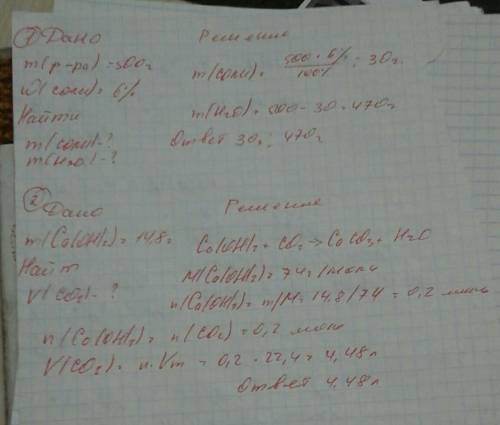 ① Дано Решение
m(р-ра) = 500г m(соли) = 500 · 6% / 100% = 30г.
ω(соли) = 6%
Найти m(H2O) = 500 - 30 = 470г
m(соли) - ? Ответ 30г; 470г
m(H2O) - ?
② Дано Решение
m(Ca(OH)2) = 14,8г Ca(OH)2 + CO2 → CaCO3 + H2O
Найт M(Ca(OH)2) = 74г/моль
V(CO2) - ? n(Ca(OH)2 = m/M = 14,8/74 = 0,2 моль
n(Ca(OH)2) = n(CO2) = 0,2 моль
V(CO2) = n·Vm = 0,2 · 22,4 = 4,48л
Ответ 4,48л